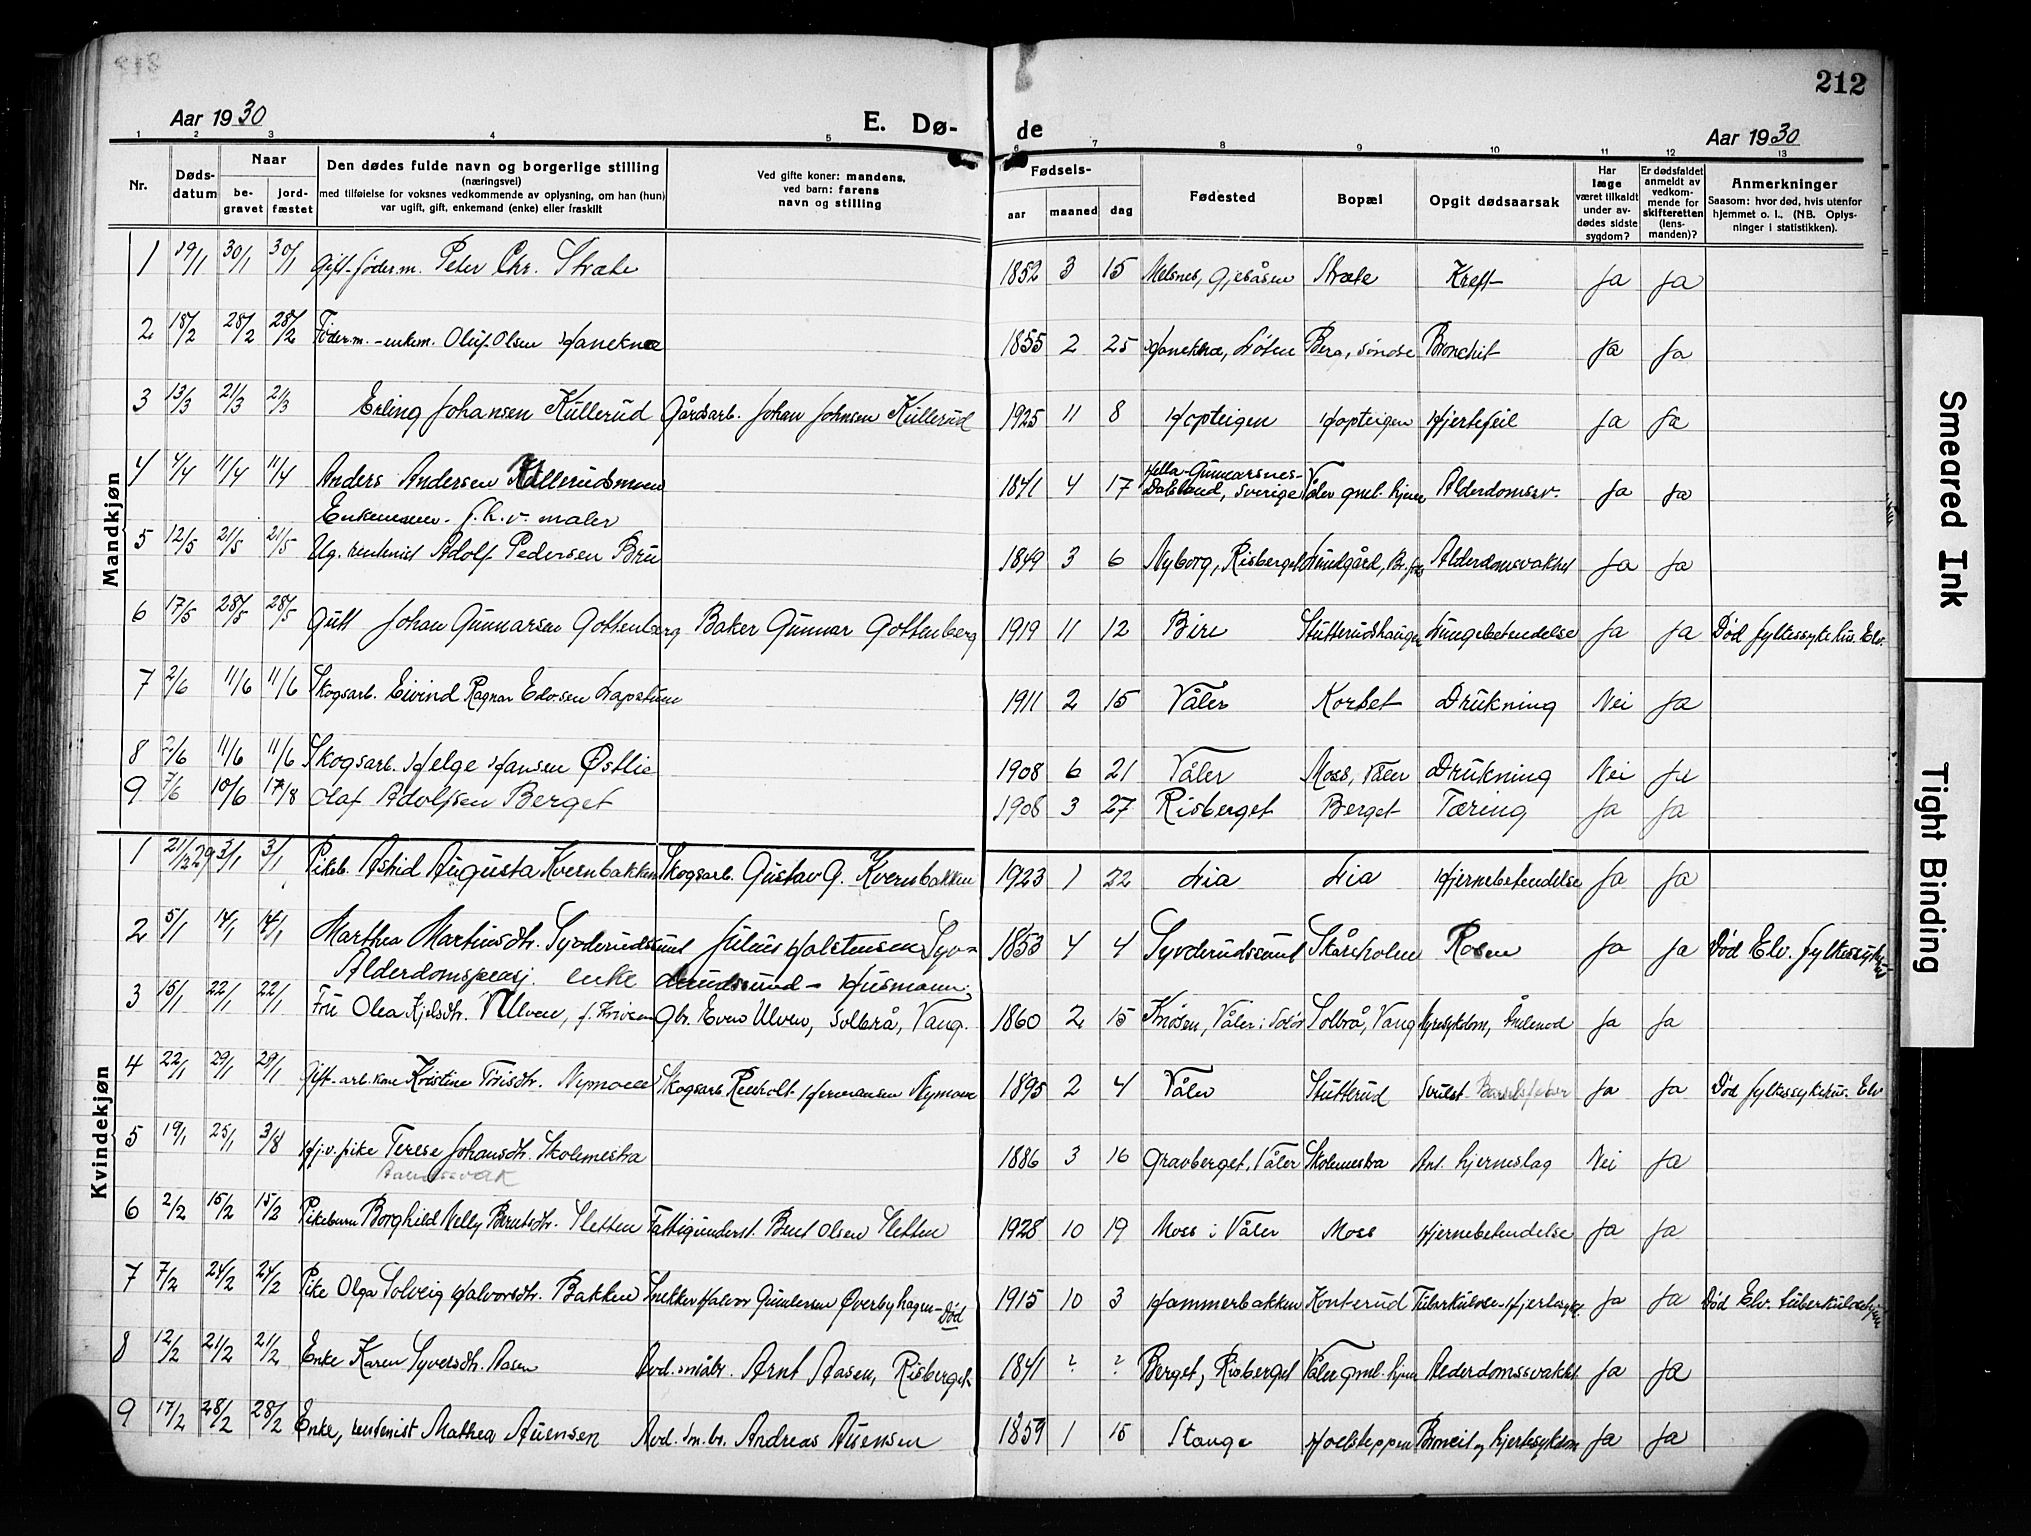 212
Aar 1930
E. Dø-
de
Aar 1930
1 2 3 4 5 6 7 8 9 10 11 12 13
Nr.
Døds-
datum
Naar
be-
gravet
jord-
fæstet
Den dødes fulde navn og borgerlige stilling
(næringsvei)
med tilføielse for voksnes vedkommende av oplysning, om han (hun)
var ugift, gift, enkemand (enke) eller fraskilt
Ved gifte koner: mandens,
ved barn: farens
navn og stilling
Fødsels-
aar maaned dag
Fødested
Bopæl
Opgit dødsaarsak
Har
læge
været tilkaldt
under av-
dødes sidste
sygdom?
Er dødsfaldet
anmeldt av
vedkom-
mende for
skifteretten
(lens-
manden)?
Anmerkninger
Saasom: hvor død, hvis utenfor
hjemmet o. l., (NB. Oplys-
ninger i statistikken).
Mandkjøn
1 19/1 30/1 30/1 Gift føder.m. Peter Chr. Stræte 1852 3 15 Melsnes, Gjesåsen Stræte Kreft Ja Ja
2 18/2 28/2 28/2 Føder.m. - enkem. Oluf Olsen Hanekne 1855 2 25 Hanekne, Løten Berg, søndre Bronchit Ja Ja
3 13/3 21/3 21/3 Erling Johansen Kullerud Gårdsarb. Johan Johnsen Kullerud 1925 11 8 Hopteigen Hopteigen Hjertefeil Ja Ja
4 4/4 11/4 11/4 Anders Andersen Kullerudsmoen 1841 4 17 Hella-Gunnarsnes-
Dalsland, Sverige Våler gml. hjem Alderdomssv. Ja Ja
Enkemann. f.h.v. maler
5 12/5 21/5 21/5 Ug. rentenist Adolf Pedersen Bru 1849 3 6 Nyborg, Risberget Alderdomsvakhet Ja Ja
6 17/5 28/5 28/5 Gutt Johan Gunnarsen Gottenberg Baker Gunnar Gottenberg 1919 11 12 Biri Stutterudshaugen Lungebetendelse Ja Ja Død fylkessykehus. Elv.
7 2/6 11/6 11/6 Skogsarb. Eivind Ragnar Edv.sen Lapstuen 1911 2 15 Våler Korbet Drukning Nei Ja
8 2/6 11/6 11/6 Skogsarb. Helge Hansen Østlie 1908 6 21 Våler Moss, Våler Drukning Nei Ja
9 7/6 10/6 17/8 Olaf Adolfsen Berget 1908 3 27 Risberget Berget Tæring Ja Ja
Kvindekjøn
1 21/12 29 3/1 3/1 Pikeb. Astrid Augusta Kvernbakken Skogsarb. Gustav G. Kvernbakken 1923 1 22 Lia Lia Hjernebetendelse Ja Ja
2 5/1 14/1 14/1 Marthea Martinusdtr. Syverudsund Julius Halstensen Syv- 1853 4 4 Syverudssund Skårsholen Rosen Ja Ja Død Elv. fylkessykehus
Alderdomspensj. enke erudssund - Husmann.
3 15/1 22/1 22/1 Fru Olea Kjelsdtr. Ulven, Gbr. Even Ulven, Solbrå, Vang. 1860 2 15 Knosen, Våler i Solør Solbrå, Vang Nyresykdom, Ja Ja
4 22/1 29/1 29/1 Gift arb.kone Kristine Törisdtr. Nymoen Skogsarb. Reinholt Hermansen Nymoen 1895 2 4 Våler Stutterud Svulst Barselsfeber Ja Ja Død fylkessykehus. Elv
5 19/1 25/1 3/8 Hj.v. pike Terese Johansdtr. Skolmestra 1886 3 16 Gravberget, Våler Skolmestra Ant. hjerneslag Nei Ja
6 2/2 15/2 15/2 Pikebarn Borghild Nelly Berntsdtr. Sletten Fattigunderst. Bernt Olsen Sletten 1928 10 19 Moss i Våler Moss Hjernebetendelse Ja Ja
7 7/2 24/2 24/2 Pike Olga Solveig Halvorsdtr. Bakken Snekker Halvor Gundersen Øverbyhagen - Död 1915 10 3 Hammerbakken Konterud Tuberkulose - Hjertesykd. Ja Ja Død Elv. tuberkulosehjem
8 12/2 21/2 21/2 Enke Karen Syversdtr. Aasen Avd. småbr. Arnt Aasen, Risberget 1841 ? ? Berget, Risberget Våler gml. hjem Alderdomssvakhet Ja Ja
9 17/2 28/2 28/2 Enke, rentenist Mathea Auensen Avd. sm.br. Andreas Auensen 1859 1 15 Stange Hoelsteppen Broncit og hjertesykdom Ja Ja
Smeared Ink
Tight Binding